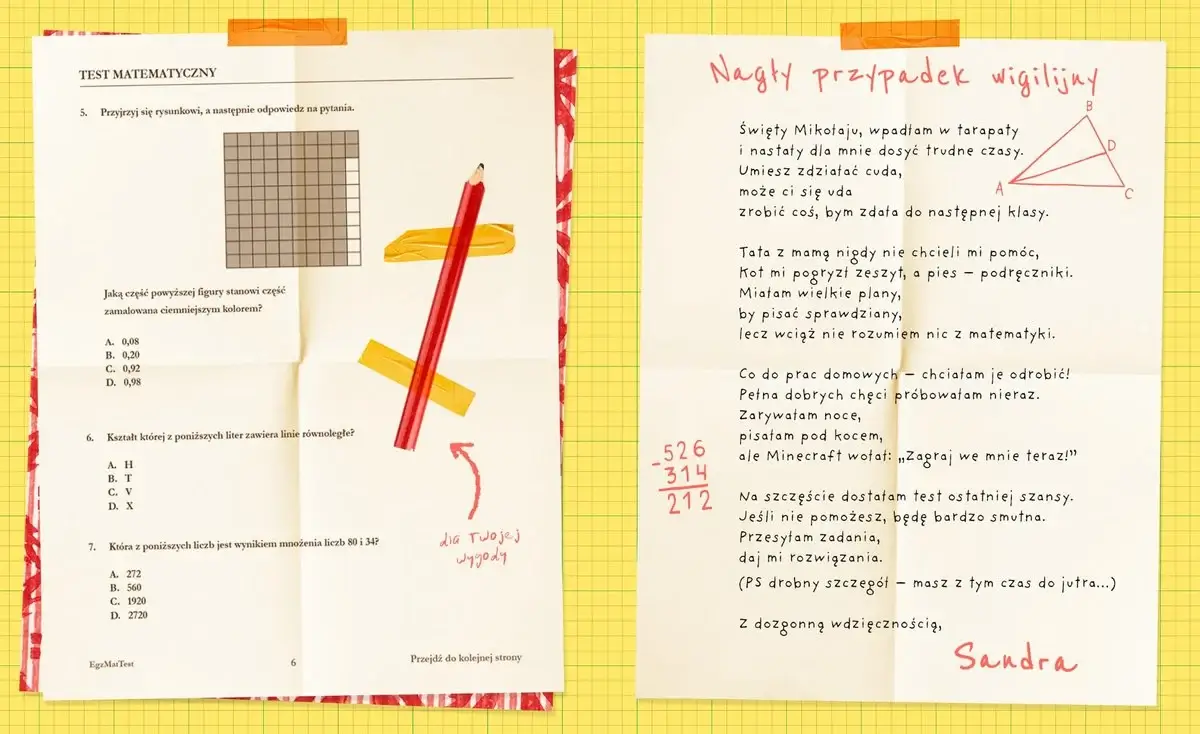 TEST MATEMATYCZNY
5. Przyjrzyj się rysunkowi, a następnie odpowiedz na pytania.
Jaką część powyższej figury stanowi część
zamalowana ciemniejszym kolorem?
A. 0,08
B. 0,20
C. 0,92
D. 0,98
6. Kształt której z poniższych liter zawiera linie równoległe?
A. H
B. T
C. V
D. X
7. Która z poniższych liczb jest wynikiem mnożenia liczb 80 i 34?
A. 272
B. 560
C. 1920
D. 2720
dla Twojej
wygody
EgzMatTest
6
Przejdź do kolejnej strony
Nagły przypadek wigilijny
Święty Mikołaju, wpadłam w tarapaty
i nastały dla mnie dosyć trudne czasy.
Umiesz zdziałać cuda,
może ci się uda
zrobić coś, bym zdała do następnej klasy.
B
D
A
C
Tata z mamą nigdy nie chcieli mi pomóc,
Kot mi pogryzł zeszyt, a pies – podręczniki.
Miałam wielkie plany,
by pisać sprawdziany,
lecz wciąż nie rozumiem nic z matematyki.
Co do prac domowych – chciałam je odrobić!
Pełna dobrych chęci próbowałam nieraz.
Zarywałam noce,
pisałam pod kocem,
ale Minecraft wołał: „Zagraj we mnie teraz!”
526
-314
212
Na szczęście dostałam test ostatniej szansy.
Jeśli nie pomożesz, będę bardzo smutna.
Przesyłam zadania,
daj mi rozwiązania.
(PS drobny szczegół – masz z tym czas do jutra...)
Z dozgonną wdzięcznością,
Sandra